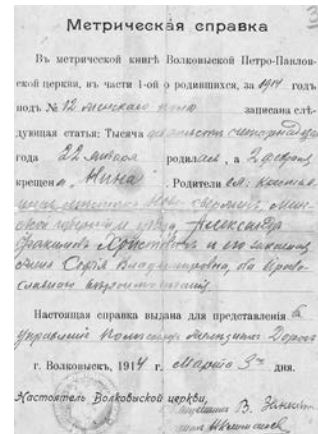 3
Метрическая справка
Въ метрической книгѣ Волковыской Петро-Павлов-
ской церкви, въ части 1-ой о родившихся, за 1914 годъ
подъ № 12 женскаго пола записана слѣ-
дующая статья: Тысяча девятьсотъ четырнадцатаго
года 22 января родилась, а 2 февраля
крещена "Нина". Родители ея:
Мин-
ской губерніи уѣзда, Александръ
Христовъ и его законная
жена Софія Владиміровна, оба Право-
славнаго вѣроисповѣданія
Настоящая справка выдана для представленія въ
Управленіе Полѣсскихъ желѣзныхъ Дорогъ
г. Волковыскъ, 1914 г. Марта 3 дня.
Настоятель Волковыской церкви,
В.